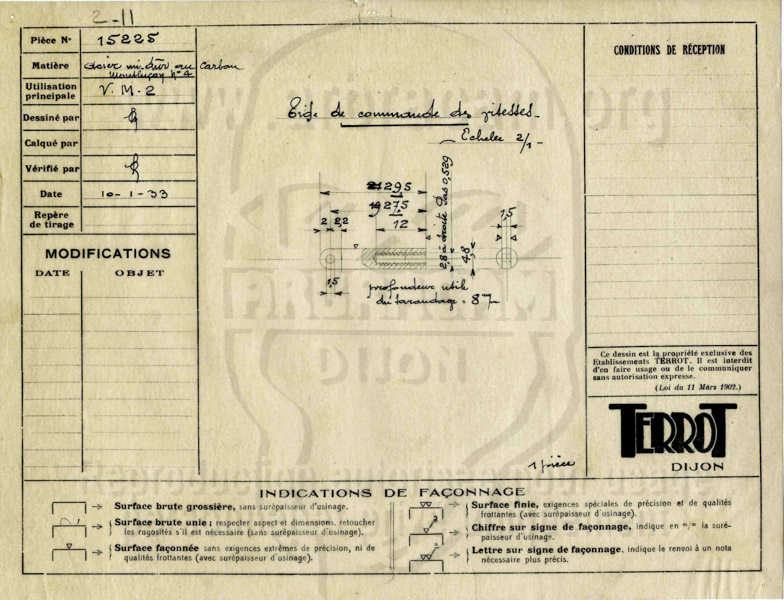 2-11
Pièce N° 15225
Matière acier mi-dur au Carbone
Montluçon N° 4
Utilisation principale V.M-2
Dessiné par
Calqué par
Vérifié par
Date 10-1-33
Repère de tirage
MODIFICATIONS
DATE OBJET
Tige de commande des vitesses.
Echelle 2/1
29,5
27,5
2 2,2 12
2,8 à droite pas 0,529
4,8
1,5
1,5
profondeur utile
du taraudage = 8 m/m
1 pièce
CONDITIONS DE RÉCEPTION
Ce dessin est la propriété exclusive des
Etablissements TERROT. Il est interdit
d'en faire usage ou de le communiquer
sans autorisation expresse.
(Loi du 11 Mars 1902.)
TERROT
DIJON
INDICATIONS DE FAÇONNAGE
Surface brute grossière, sans surépaisseur d'usinage.
Surface brute unie; respecter aspect et dimensions, retoucher
les rugosités s'il est nécessaire (sans surépaisseur d'usinage).
Surface façonnée sans exigences extrêmes de précision, ni de
qualités frottantes (avec surépaisseur d'usinage).
Surface finie, exigences spéciales de précision et de qualités
frottantes (avec surépaisseur d'usinage).
Chiffre sur signe de façonnage, indique en m/m la suré-
paisseur d'usinage.
Lettre sur signe de façonnage, indique le renvoi à un nota
nécessaire plus précis.